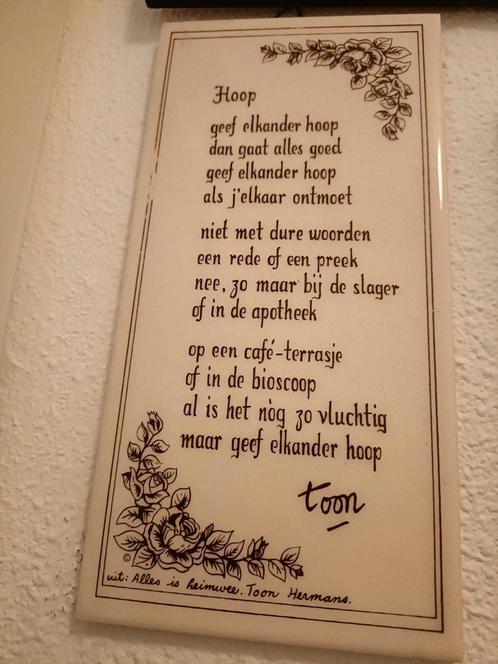 Hoop
geef elkander hoop
dan gaat alles goed
geef elkander hoop
als j'elkaar ontmoet
niet met dure woorden
een rede of een preek
nee, zo maar bij de slager
of in de apotheek
op een café-terrasje
of in de bioscoop
al is het nòg zo vluchtig
maar geef elkander hoop
toon
©
uit: Alles is heimwee. Toon Hermans.